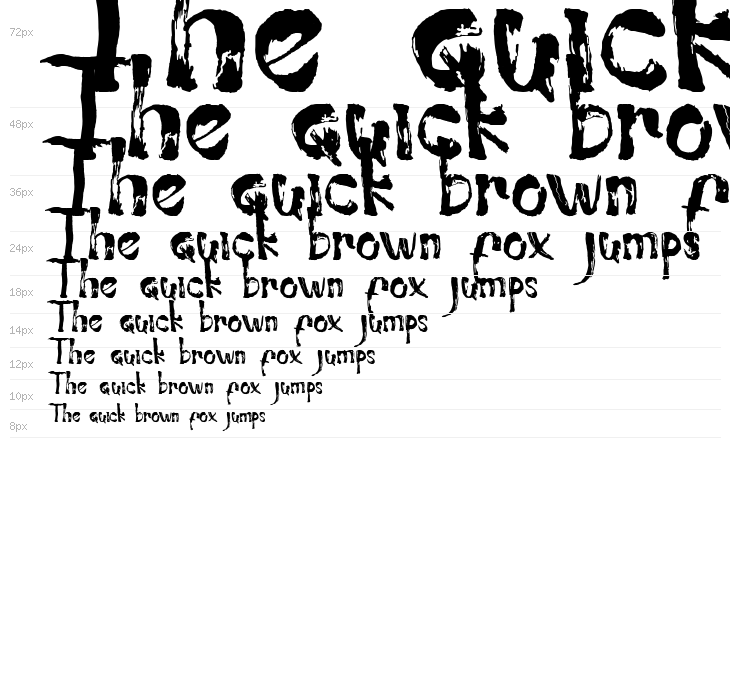 72px The quick
48px The quick brow
36px The quick brown f
24px The quick brown fox jumps
18px The quick brown fox jumps
14px The quick brown fox jumps
12px The quick brown fox jumps
10px The quick brown fox jumps
8px The quick brown fox jumps